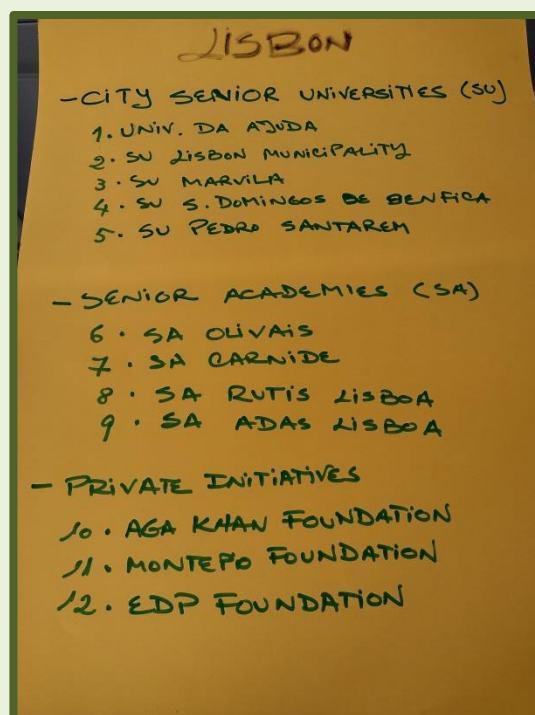 LISBON
- CITY SENIOR UNIVERSITIES (SU)
1. UNIV. DA AJUDA
2. SU LISBON MUNICIPALITY
3. SU MARVILA
4. SU S. DOMINGOS DE BENFICA
5. SU PEDRO SANTAREM
- SENIOR ACADEMIES (SA)
6. SA OLIVAIS
7. SA CARNIDE
8. SA RUTIS LISBOA
9. SA ADAS LISBOA
- PRIVATE INITIATIVES
10. AGA KHAN FOUNDATION
11. MONTEPO FOUNDATION
12. EDP FOUNDATION